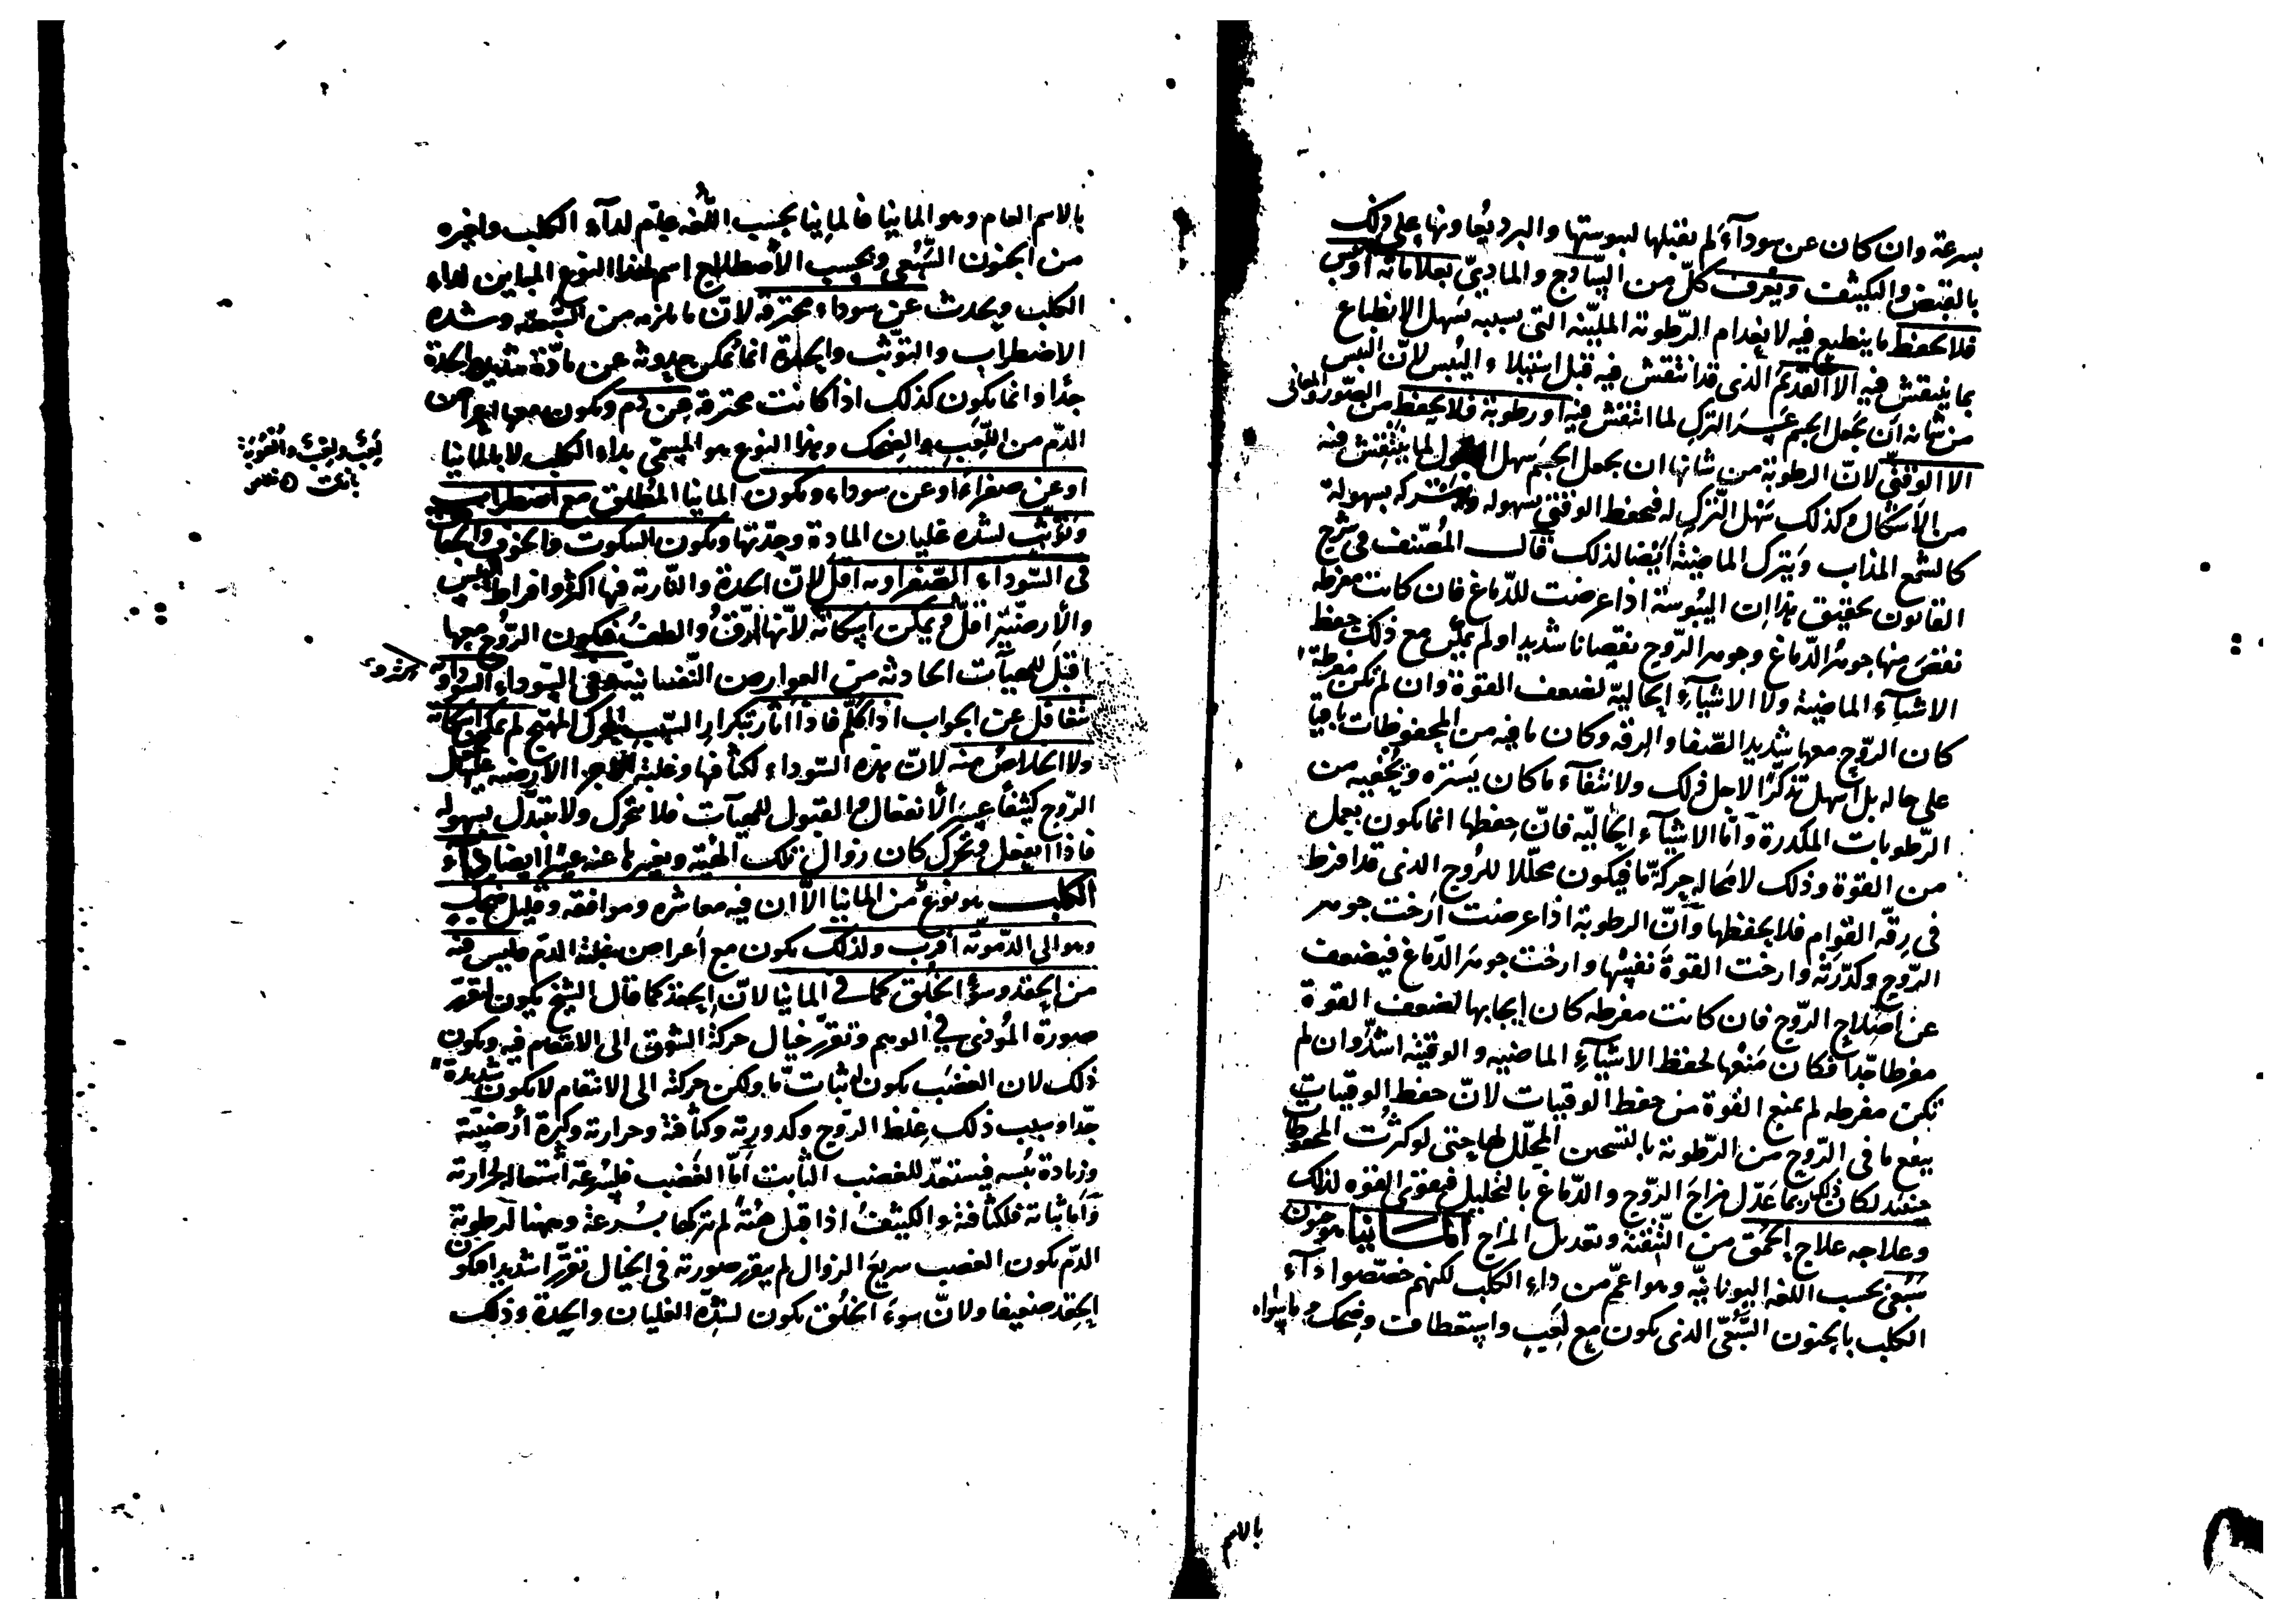 بسرعة وان كان عن سوداء لم يقبلها ليبوستها والبرد يعاونها على ذلك
بالقبض والتكثيف ويعرف كل من الساذج والمادي بعلاماته او يبس
فلا يحفظ ما ينطبع فيه لانعدام الرطوبة الملينة التي بسببه يسهل الانطباع
بما ينتقش فيه الا القديم الذي قد انتقش فيه قبل استيلاء اليبس لان اليبس
من شانه ان يجعل الجسم عسر الترك لما انتقش فيه او رطوبة فلا يحفظ من الصور والمعاني
الا الوقتي لان الرطوبة من شانها ان يجعل الجسم سهل القبول لما ينتقش فيه
من الاشكال وكذلك سهل الترك له فيحفظ الوقتي بسهولة ويتركه بسهولة
كالشمع المذاب ويترك الماضية ايضا لذلك قال المصنف في شرح
القانون تحقيق هذا ان اليبوسة اذا عرضت للدماغ فان كانت مفرطة
نقص منها جوهر الدماغ وجوهر الروح نقصانا شديدا ولم يمكن مع ذلك حفظ
الاشياء الماضية ولا الاشياء الحالية لضعف القوة وان لم تكن مفرطة
كان الروح معها شديد الصفا والرقة وكان ما فيه من المحفوظات باقيا
على حاله بل اسهل تذكرا لاجل ذلك ولانتفاء ما كان يستره ويخفيه من
الرطوبات المكدرة واما الاشياء الحالية فان حفظها انما يكون بعمل
من القوة وذلك لا محالة حركة ما فيكون محللا للروح الذي قد افرط
في رقة القوام فلا يحفظها وان الرطوبة اذا عرضت ارخت جوهر
الروح وكدرته وارخت القوة نفسها وارخت جوهر الدماغ فيضعف
عن اصلاح الروح فان كانت مفرطة كان ايجابها لضعف القوة
مفرطا جدا فكان منعها لحفظ الاشياء الماضية والوقتية اشد وان لم
تكن مفرطة لم يمنع القوة من حفظ الوقتيات لان حفظ الوقتيات
ينفع ما في الروح من الرطوبة بالتسخين المحلل لها حتى لو كثرت المحفوظات
حينئذ لكان ذلك ربما عدل مزاج الروح والدماغ بالتحليل فيقوى القوة لذلك
وعلاجه علاج الحمق من التنقية وتعديل المزاج المانيا هو جنون
سبعي بحسب اللغة اليونانية وهو اعم من داء الكلب لكنهم خصصوا داء
الكلب بالجنون السبعي الذي يكون مع لعب واستعطاف وضحك وما سواه
بالاسم
بالاسم العام وهو المانيا فالمانيا بحسب اللغة عام لداء الكلب ولغيره
من الجنون السبعي وبحسب الاصطلاح اسم لهذا النوع المباين لداء
الكلب ويحدث عن سوداء محترقة لان ما يلزمه من السبعية وشدة
الاضطراب والتوثب والحدة انما يمكن حدوثه عن مادة شديدة الحدة
جدا وانما يكون كذلك اذا كانت محترقة عن دم ويكون معها
الدم من اللعب والضحك وهذا النوع هو المسمى بداء الكلب لا بالمانيا
او عن صفراء او عن سوداء ويكون المانيا المطلق مع اضطراب
وتوثب لشدة غليان المادة وحدتها ويكون السكوت والخوف
في السوداء الصفراوية اقل لان الحدة والنارية فيها اكثر وافراط اليبس
والارضية اقل ويمكن اسكاته لانها ارق والطف فيكون الروح معها
اقبل للهيآت الحادثة من العوارض النفسانية وفي السوداء السوداوية
يتغافل عن الجواب اذا كلم فاذا اثار بتكرار السبب المحرك المهيج لم يمكن اسكاته
ولا الخلاص منه لان هذه السوداء لكثافتها وغلبة الاجزاء الارضية عليها
الروح كثيفا عسر الانفعال والقبول للهيآت فلا يتحرك ولا يتبدل بسهولة
فاذا انفعل وتحرك كان زوال تلك الهيئة وتغيرها عنه عسرا ايضا وداء
الكلب هو نوع من المانيا الا ان فيه معاشرة وموافقة وقليل ضحك
وهو الى الدموية اقرب ولذلك يكون مع اعراض غلبة الدم فليس فيه
من الحقد وسوء الخلق كما في المانيا لان الحقد كما قال الشيخ يكون لتقرر
صورة المؤذي في الوهم وتقرر خيال حركة الشوق الى الانتقام فيه ويكون
ذلك لان الغضب يكون له ثبات ما ولكن حركته الى الانتقام لا يكون شديدة
جدا وسبب ذلك غلظ الروح وكدورته وكثافته وحرارته وكثرة ارضيته
وزيادة يبسه فيستعد للغضب الثابت اما الغضب فلسرعة اشتعاله لحرارته
واما ثباته فلكثافته والكثيف اذا قبل هيئة لم يتركها بسرعة وههنا لرطوبة
الدم يكون الغضب سريع الزوال لم يتقرر صورته في الخيال تقررا شديدا فيكون
الحقد ضعيفا ولان سوء الخلق يكون لشدة الغليان والحدة وذلك